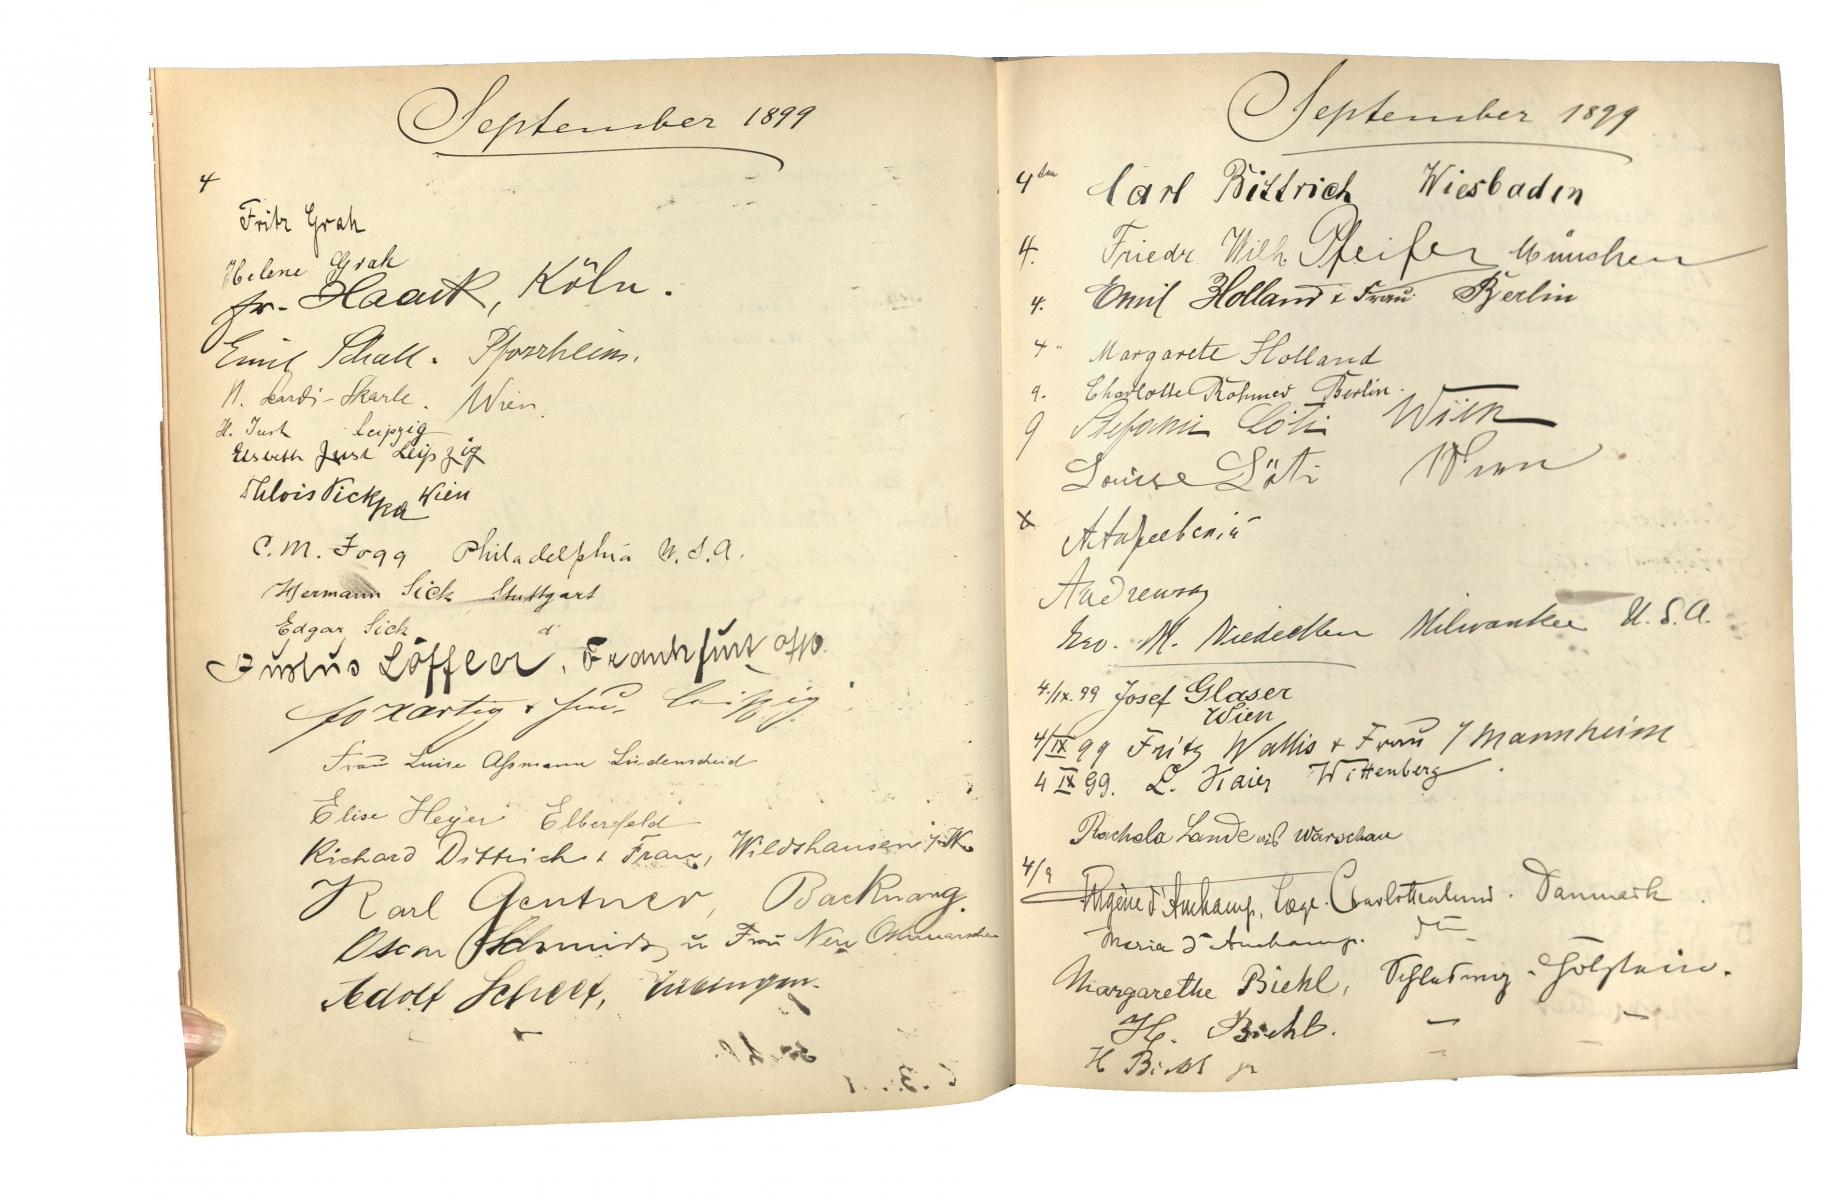 September 1899
4
Fritz Grah
Helene Grah
Fr. Haack, Köln.
Emil Schall. Pforzheim.
Wien.
H. Just Leipzig
Elsbeth Just Leipzig
Wien
C. M. Fogg Philadelphia U.S.A.
Hermann Sick Stuttgart
Edgar Sick d
Justus Löffler, Frankfurt o/M.
Leipzig
Frau Luise Aßmann Lüdenscheid
Elise Heyer Elberfeld
Richard Dittrich & Frau, Wildshausen i/W.
Karl Gentner, Backnang.
Oscar Schmidt u Frau Neu
Adolf Scheef, Tübingen.
September 1899
4ten Carl Bittrich Wiesbaden
4. Friedr Wilh Pfeifer München
4. Emil Holland & Frau Berlin
4 " Margarete Holland
9. Charlotte Berlin.
9 Stefanie Löti Wien
Louise Löti Wien
X
Andrewsay
Geo. M. Niedecken Milwaukee U.S.A.
4./IX. 99 Josef Glaser
Wien
4/IX 99 Fritz Wallis & Frau / Mannheim
4 IX 99. L. Haier Wittenberg
Rachela Lande aus Warschau
4/9
Eugène d'Auchamp, Læge. Charlottenlund. Danmark.
Maria d'Auchamp.
Margarethe Biehl, Schleswig-Holstein.
H. Biehl. — —
H Biehl jr — —